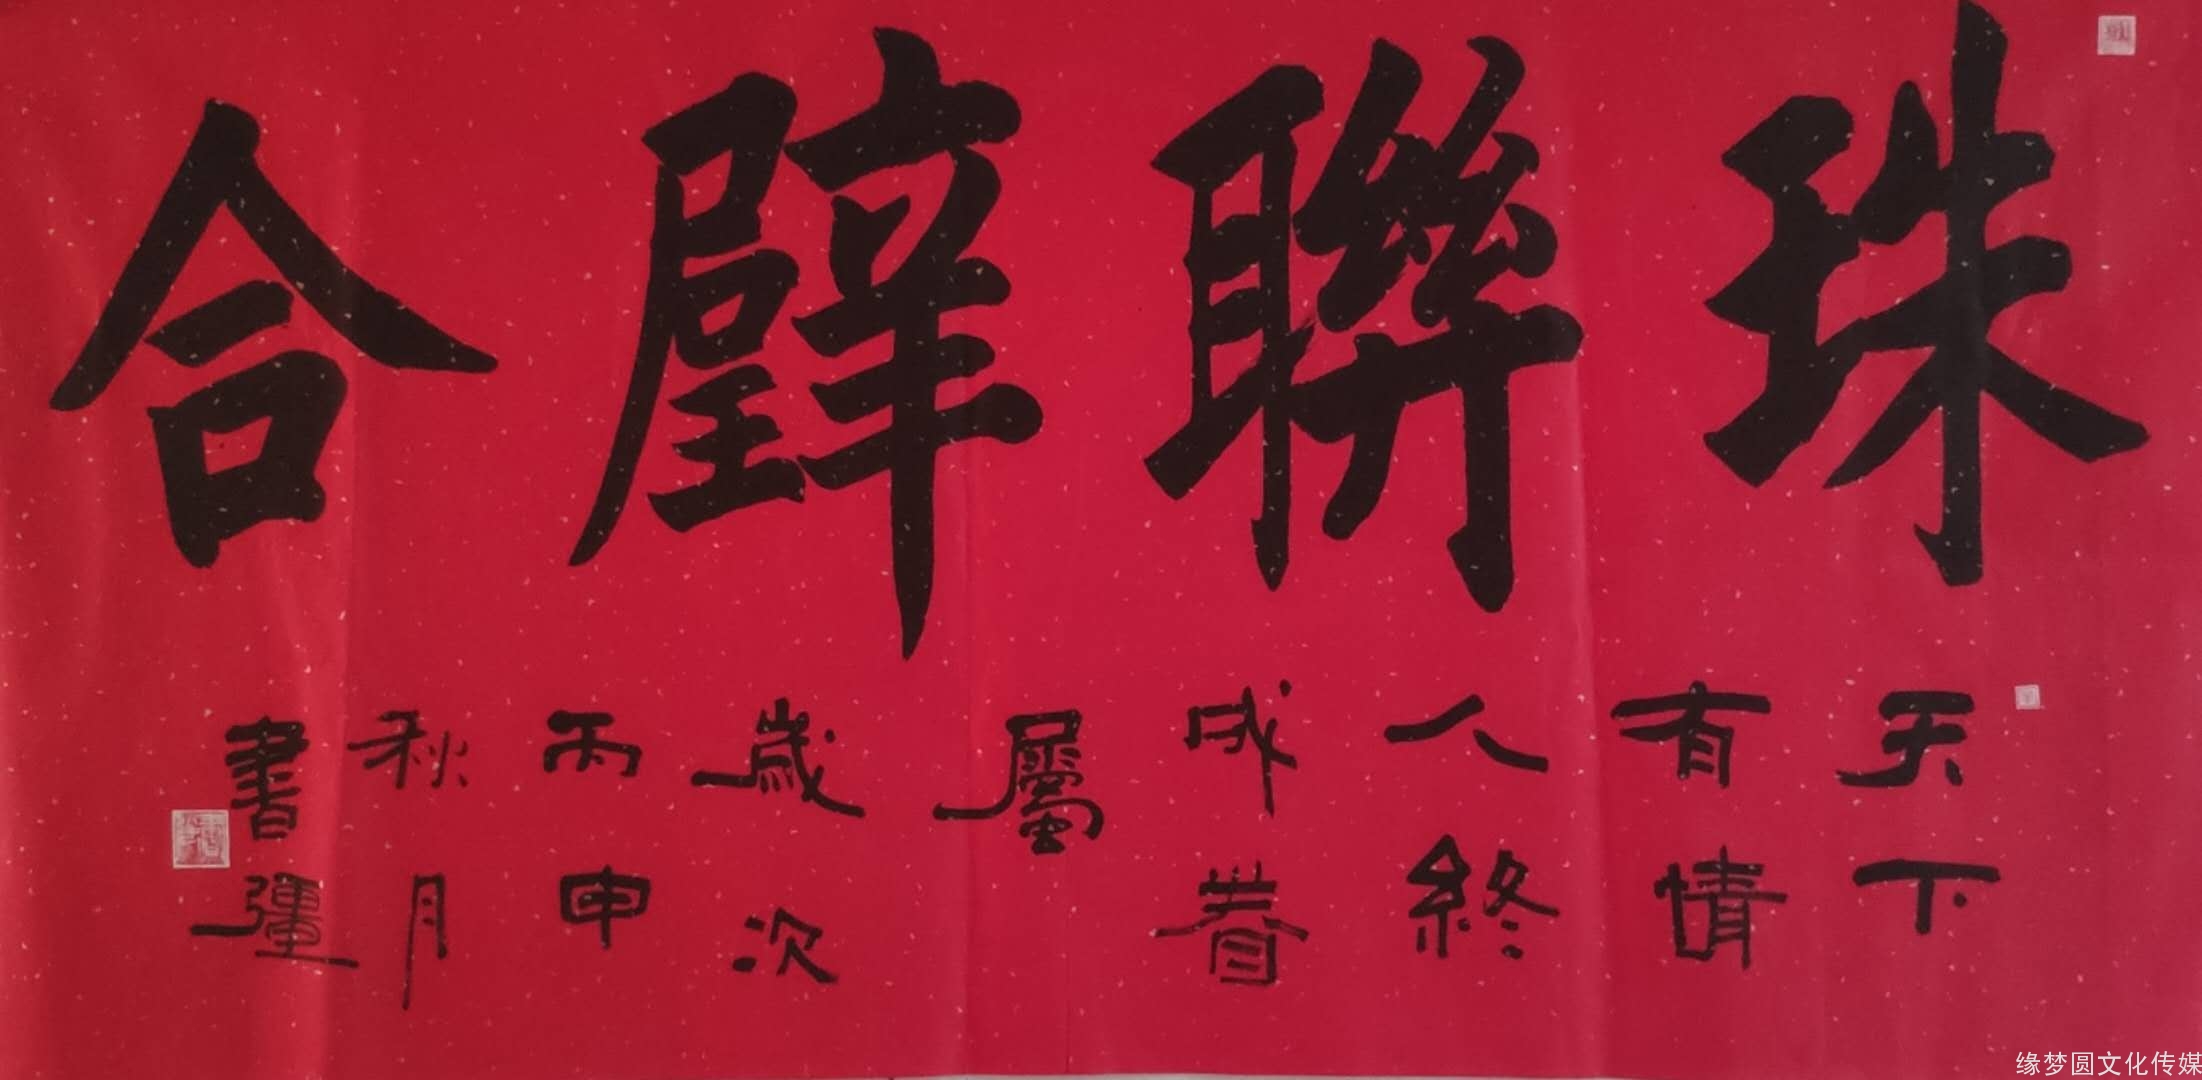 珠聯璧合
天下
有情
人終
成眷
屬
歲次
丙申
秋月
書彊
缘梦圆文化传媒